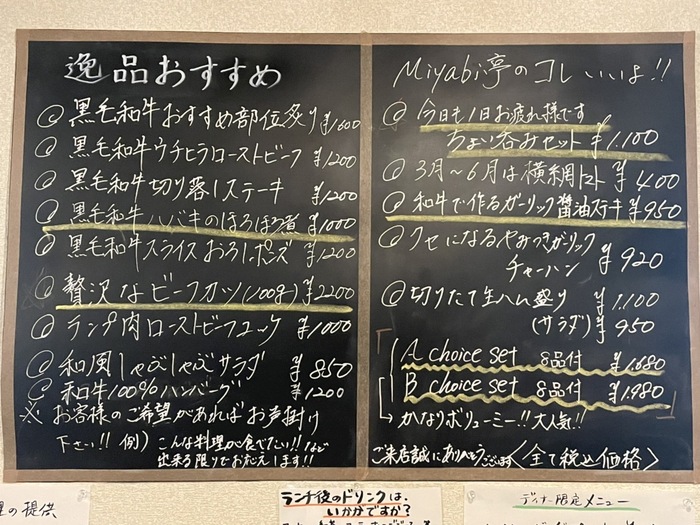 逸品おすすめ
◎ 黒毛和牛おすすめ部位炙り ¥1600
◎ 黒毛和牛ウチヒラローストビーフ ¥1200
◎ 黒毛和牛切り落しステーキ ¥1200
◎ 黒毛和牛ハバキのほろほろ煮 ¥1000
◎ 黒毛和牛スライスおろしポンズ ¥1200
◎ 贅沢なビーフカツ(100g) ¥2200
◎ ランプ肉ローストビーフユッケ ¥1000
◎ 和風しゃぶしゃぶサラダ ¥850
◎ 和牛100%ハンバーグ ¥1200
※ お客様のご希望があればお声掛け
下さい!! 例) こんな料理が食べたい!! など
出来る限りでお応えします!!
Miyabi亭のコレいいよ!!
◎ 今日も1日お疲れ様です
ちょい呑みセット ¥1.100
◎ 3月〜6月は横綱トマト ¥400
◎ 和牛で作るガーリック醤油ステーキ ¥950
◎ クセになるやみつきガーリック
チャーハン ¥920
◎ 切りたて生ハム盛り ¥1.100
(サラダ) ¥950
A choice set 8品付 ¥1.680
B choice set 8品付 ¥1.980
かなりボリューミー!! 大人気!!
ご来店誠にありがとうございます <全て税込価格>
の提供
ランチ後のドリンクは、
いかがですか?
ディナー限定メニュー